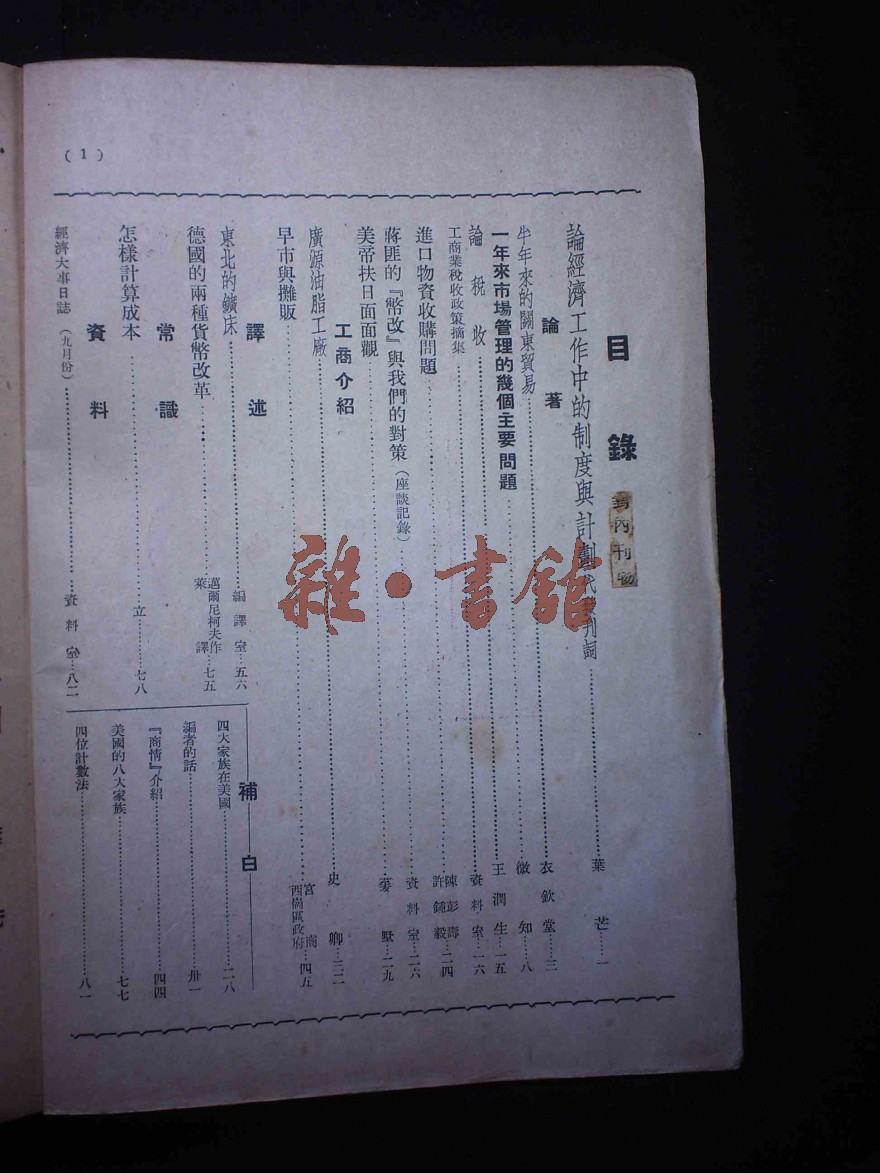 (1)
目錄
內刊物
論經濟工作中的制度與計劃代刊詞……葉芒…一
論著
半年來的關東貿易……衣欽堂…三
一年來市場管理的幾個主要問題……微知…八
論稅收……王潤生…一五
工商業稅收政策摘集……資料室…一六
進口物資收購問題……陳彭壽 許鍾毅…二四
蔣匪的『幣改』與我們的對策(座談記錄)……資料室…二六
美帝扶日面面觀……墅…二九
工商介紹
廣源油脂工廠……史卿…三二
早市與攤販……宮商 西崗區政府…四五
譯述
東北的鑛床……編譯室…五六
德國的兩種貨幣改革……邁爾尼柯夫作 萊譯…七五
常識
怎樣計算成本……立……七八
資料
經濟大事日誌(九月份)……資料室…八二
補白
四大家族在美國……二八
編者的話……卅一
『商情』介紹……四四
美國的八大家族……七七
四位計數法……八一
雜·書館